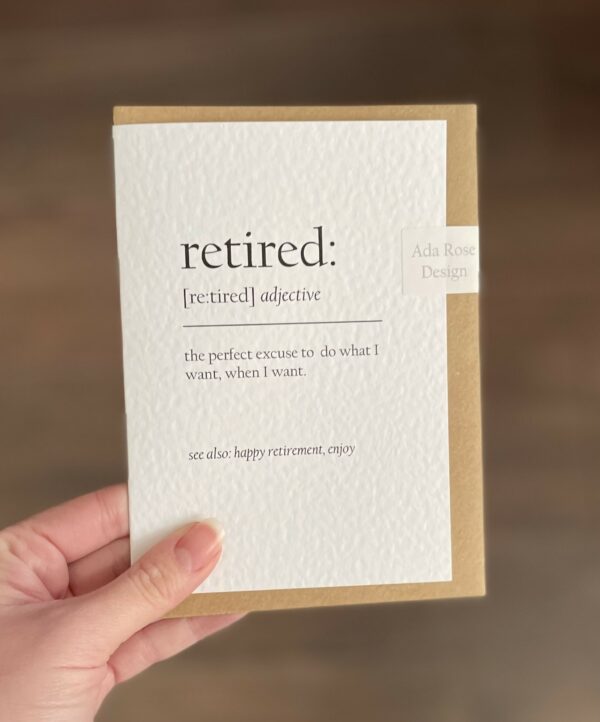 retired:
[re:tired] adjective
the perfect excuse to do what I
want, when I want.
see also: happy retirement, enjoy
Ada Rose
Design